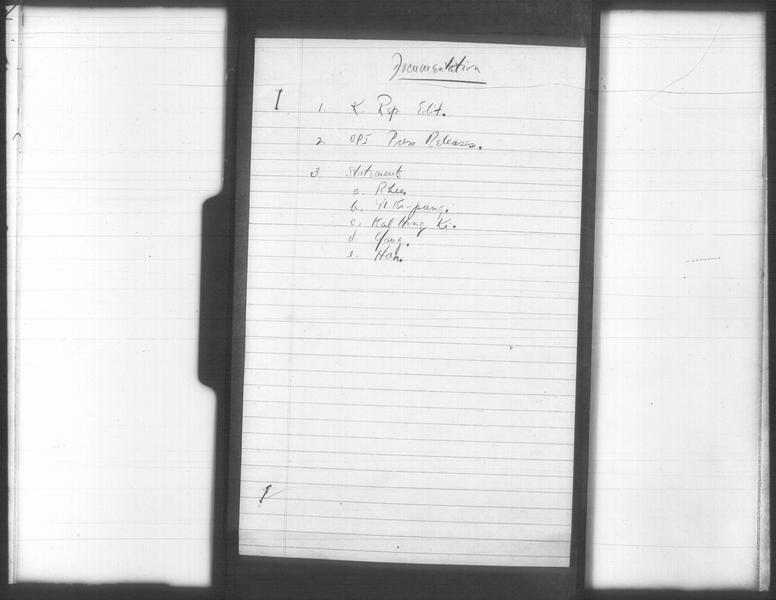 Documentation
I 1. K. Rep. Edit.
2. OPI Press Releases.
3 Statements
a. Rhee
b. Yi Ki-pung.
c. Kal Hong Ki.
d. Yang.
e. Han.